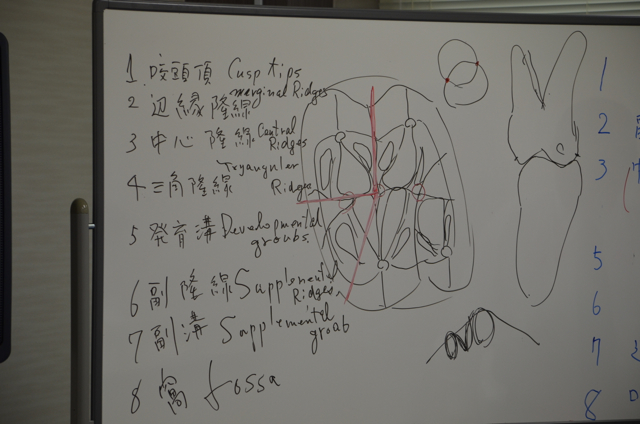 1 咬頭頂 Cusp tips
2 辺縁隆線 marginal Ridges
3 中心隆線 Central Ridges
4 三角隆線 Tryanguler Ridges
5 発育溝 Developmental groabs.
6 副隆線 Supplemental Ridges
7 副溝 Supplemental groab
8 窩 fossa
1
2
3
5
6
7
8